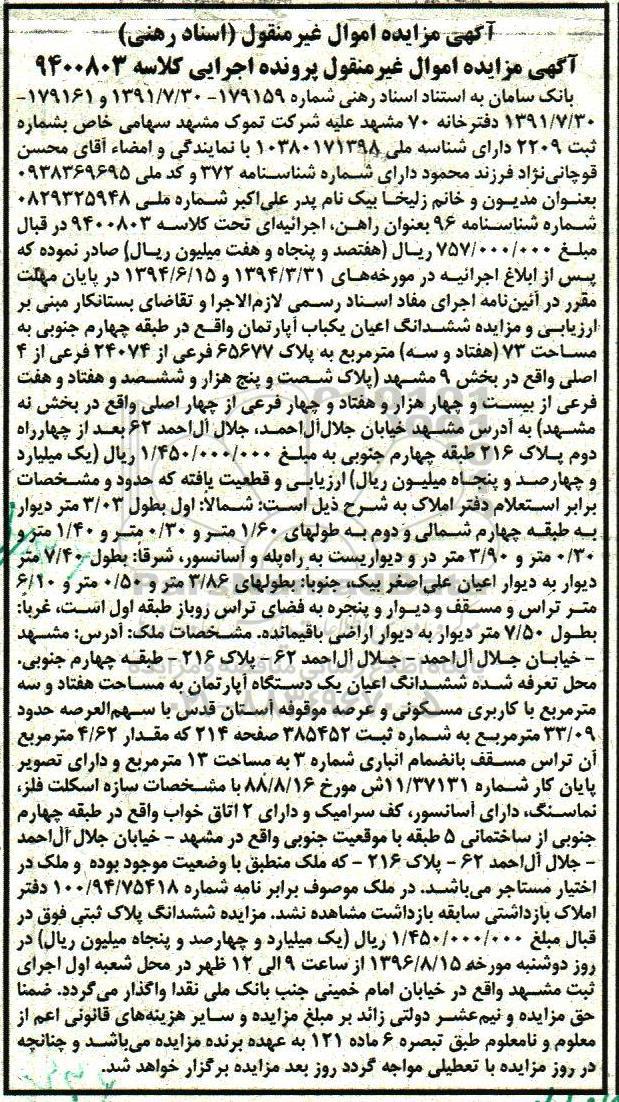 آگهی مزایده اموال غیرمنقول (اسناد رهنی)
آگهی مزایده اموال غیرمنقول پرونده اجرایی کلاسه ۹۴۰۰۸۰۳
بانک سامان به استناد اسناد رهنی شماره ۱۷۹۱۵۹- ۱۳۹۱/۷/۳۰ و ۱۷۹۱۶۱-
۱۳۹۱/۷/۳۰ دفترخانه ۷۰ مشهد علیه شرکت تموک مشهد سهامی خاص بشماره
ثبت ۲۲۰۹ دارای شناسه ملی ۱۰۳۸۰۱۷۱۳۹۸ با نمایندگی و امضاء آقای محسن
قوچانی‌نژاد فرزند محمود دارای شماره شناسنامه ۳۷۲ و کد ملی ۰۹۳۸۳۶۹۶۹۵
بعنوان مدیون و خانم زلیخا بیک نام پدر علی‌اکبر شماره ملی ۰۸۲۹۳۲۵۹۴۸
شماره شناسنامه ۹۶ بعنوان راهن، اجرائیه‌ای تحت کلاسه ۹۴۰۰۸۰۳ در قبال
مبلغ ۷۵۷/۰۰۰/۰۰۰ ریال (هفتصد و پنجاه و هفت میلیون ریال) صادر نموده که
پس از ابلاغ اجرائیه در مورخه‌های ۱۳۹۴/۳/۳۱ و ۱۳۹۴/۶/۱۵ در پایان مهلت
مقرر در آئین‌نامه اجرای مفاد اسناد رسمی لازم‌الاجرا و تقاضای بستانکار مبنی بر
ارزیابی و مزایده ششدانگ اعیان یکباب آپارتمان واقع در طبقه چهارم جنوبی به
مساحت ۷۳ (هفتاد و سه) مترمربع به پلاک ۶۵۶۷۷ فرعی از ۲۴۰۷۴ فرعی از ۴
اصلی واقع در بخش ۹ مشهد (پلاک شصت و پنج هزار و ششصد و هفتاد و هفت
فرعی از بیست و چهار هزار و هفتاد و چهار فرعی از چهار اصلی واقع در بخش نه
مشهد) به آدرس مشهد خیابان جلال‌آل‌احمد، جلال آل‌احمد ۶۲ بعد از چهارراه
دوم پلاک ۲۱۶ طبقه چهارم جنوبی به مبلغ ۱/۴۵۰/۰۰۰/۰۰۰ ریال (یک میلیارد
و چهارصد و پنجاه میلیون ریال) ارزیابی و قطعیت یافته که حدود و مشخصات
برابر استعلام دفتر املاک به شرح ذیل است: شمالا: اول بطول ۳/۰۳ متر دیوار
به طبقه چهارم شمالی و دوم به طولهای ۱/۶۰ متر و ۰/۳۰ متر و ۱/۴۰ متر و
۰/۳۰ متر و ۳/۹۰ متر در و دیواریست به راه‌پله و آسانسور، شرقا: بطول ۷/۴۰ متر
دیوار به دیوار اعیان علی‌اصغر بیک، جنوبا: بطولهای ۳/۸۶ متر و ۰/۵۰ متر و ۶/۱۰
متر تراس و مسقف و دیوار و پنجره به فضای تراس روباز طبقه اول است، غرباً:
بطول ۷/۵۰ متر دیوار به دیوار اراضی باقیمانده. مشخصات ملک: آدرس: مشهد
- خیابان جلال آل‌احمد - جلال آل‌احمد ۶۲ - پلاک ۲۱۶ - طبقه چهارم جنوبی.
محل تعرفه شده ششدانگ اعیان یک دستگاه آپارتمان به مساحت هفتاد و سه
مترمربع با کاربری مسکونی و عرصه موقوفه آستان قدس با سهم‌العرصه حدود
۳۳/۰۹ مترمربع به شماره ثبت ۳۸۵۴۵۲ صفحه ۲۱۴ که مقدار ۴/۶۲ مترمربع
آن تراس مسقف بانضمام انباری شماره ۳ به مساحت ۱۳ مترمربع و دارای تصویر
پایان کار شماره ۱۱/۳۷۱۳۱ش مورخ ۸۸/۸/۱۶ با مشخصات سازه اسکلت فلز،
نماسنگ، دارای آسانسور، کف سرامیک و دارای ۲ اتاق خواب واقع در طبقه چهارم
جنوبی از ساختمانی ۵ طبقه با موقعیت جنوبی واقع در مشهد - خیابان جلال آل‌احمد
- جلال آل‌احمد ۶۲ - پلاک ۲۱۶ - که ملک منطبق با وضعیت موجود بوده و ملک در
اختیار مستاجر می‌باشد. در ملک موصوف برابر نامه شماره ۱۰۰/۹۴/۷۵۴۱۸ دفتر
املاک بازداشتی سابقه بازداشت مشاهده نشد. مزایده ششدانگ پلاک ثبتی فوق در
قبال مبلغ ۱/۴۵۰/۰۰۰/۰۰۰ ریال (یک میلیارد و چهارصد و پنجاه میلیون ریال) در
روز دوشنبه مورخه ۱۳۹۶/۸/۱۵ از ساعت ۹ الی ۱۲ ظهر در محل شعبه اول اجرای
ثبت مشهد واقع در خیابان امام خمینی جنب بانک ملی نقدا واگذار می‌گردد. ضمنا
حق مزایده و نیم‌عشر دولتی زائد بر مبلغ مزایده و سایر هزینه‌های قانونی اعم از
معلوم و نامعلوم طبق تبصره ۶ ماده ۱۲۱ به عهده برنده مزایده می‌باشد و چنانچه
در روز مزایده با تعطیلی مواجه گردد روز بعد مزایده برگزار خواهد شد.